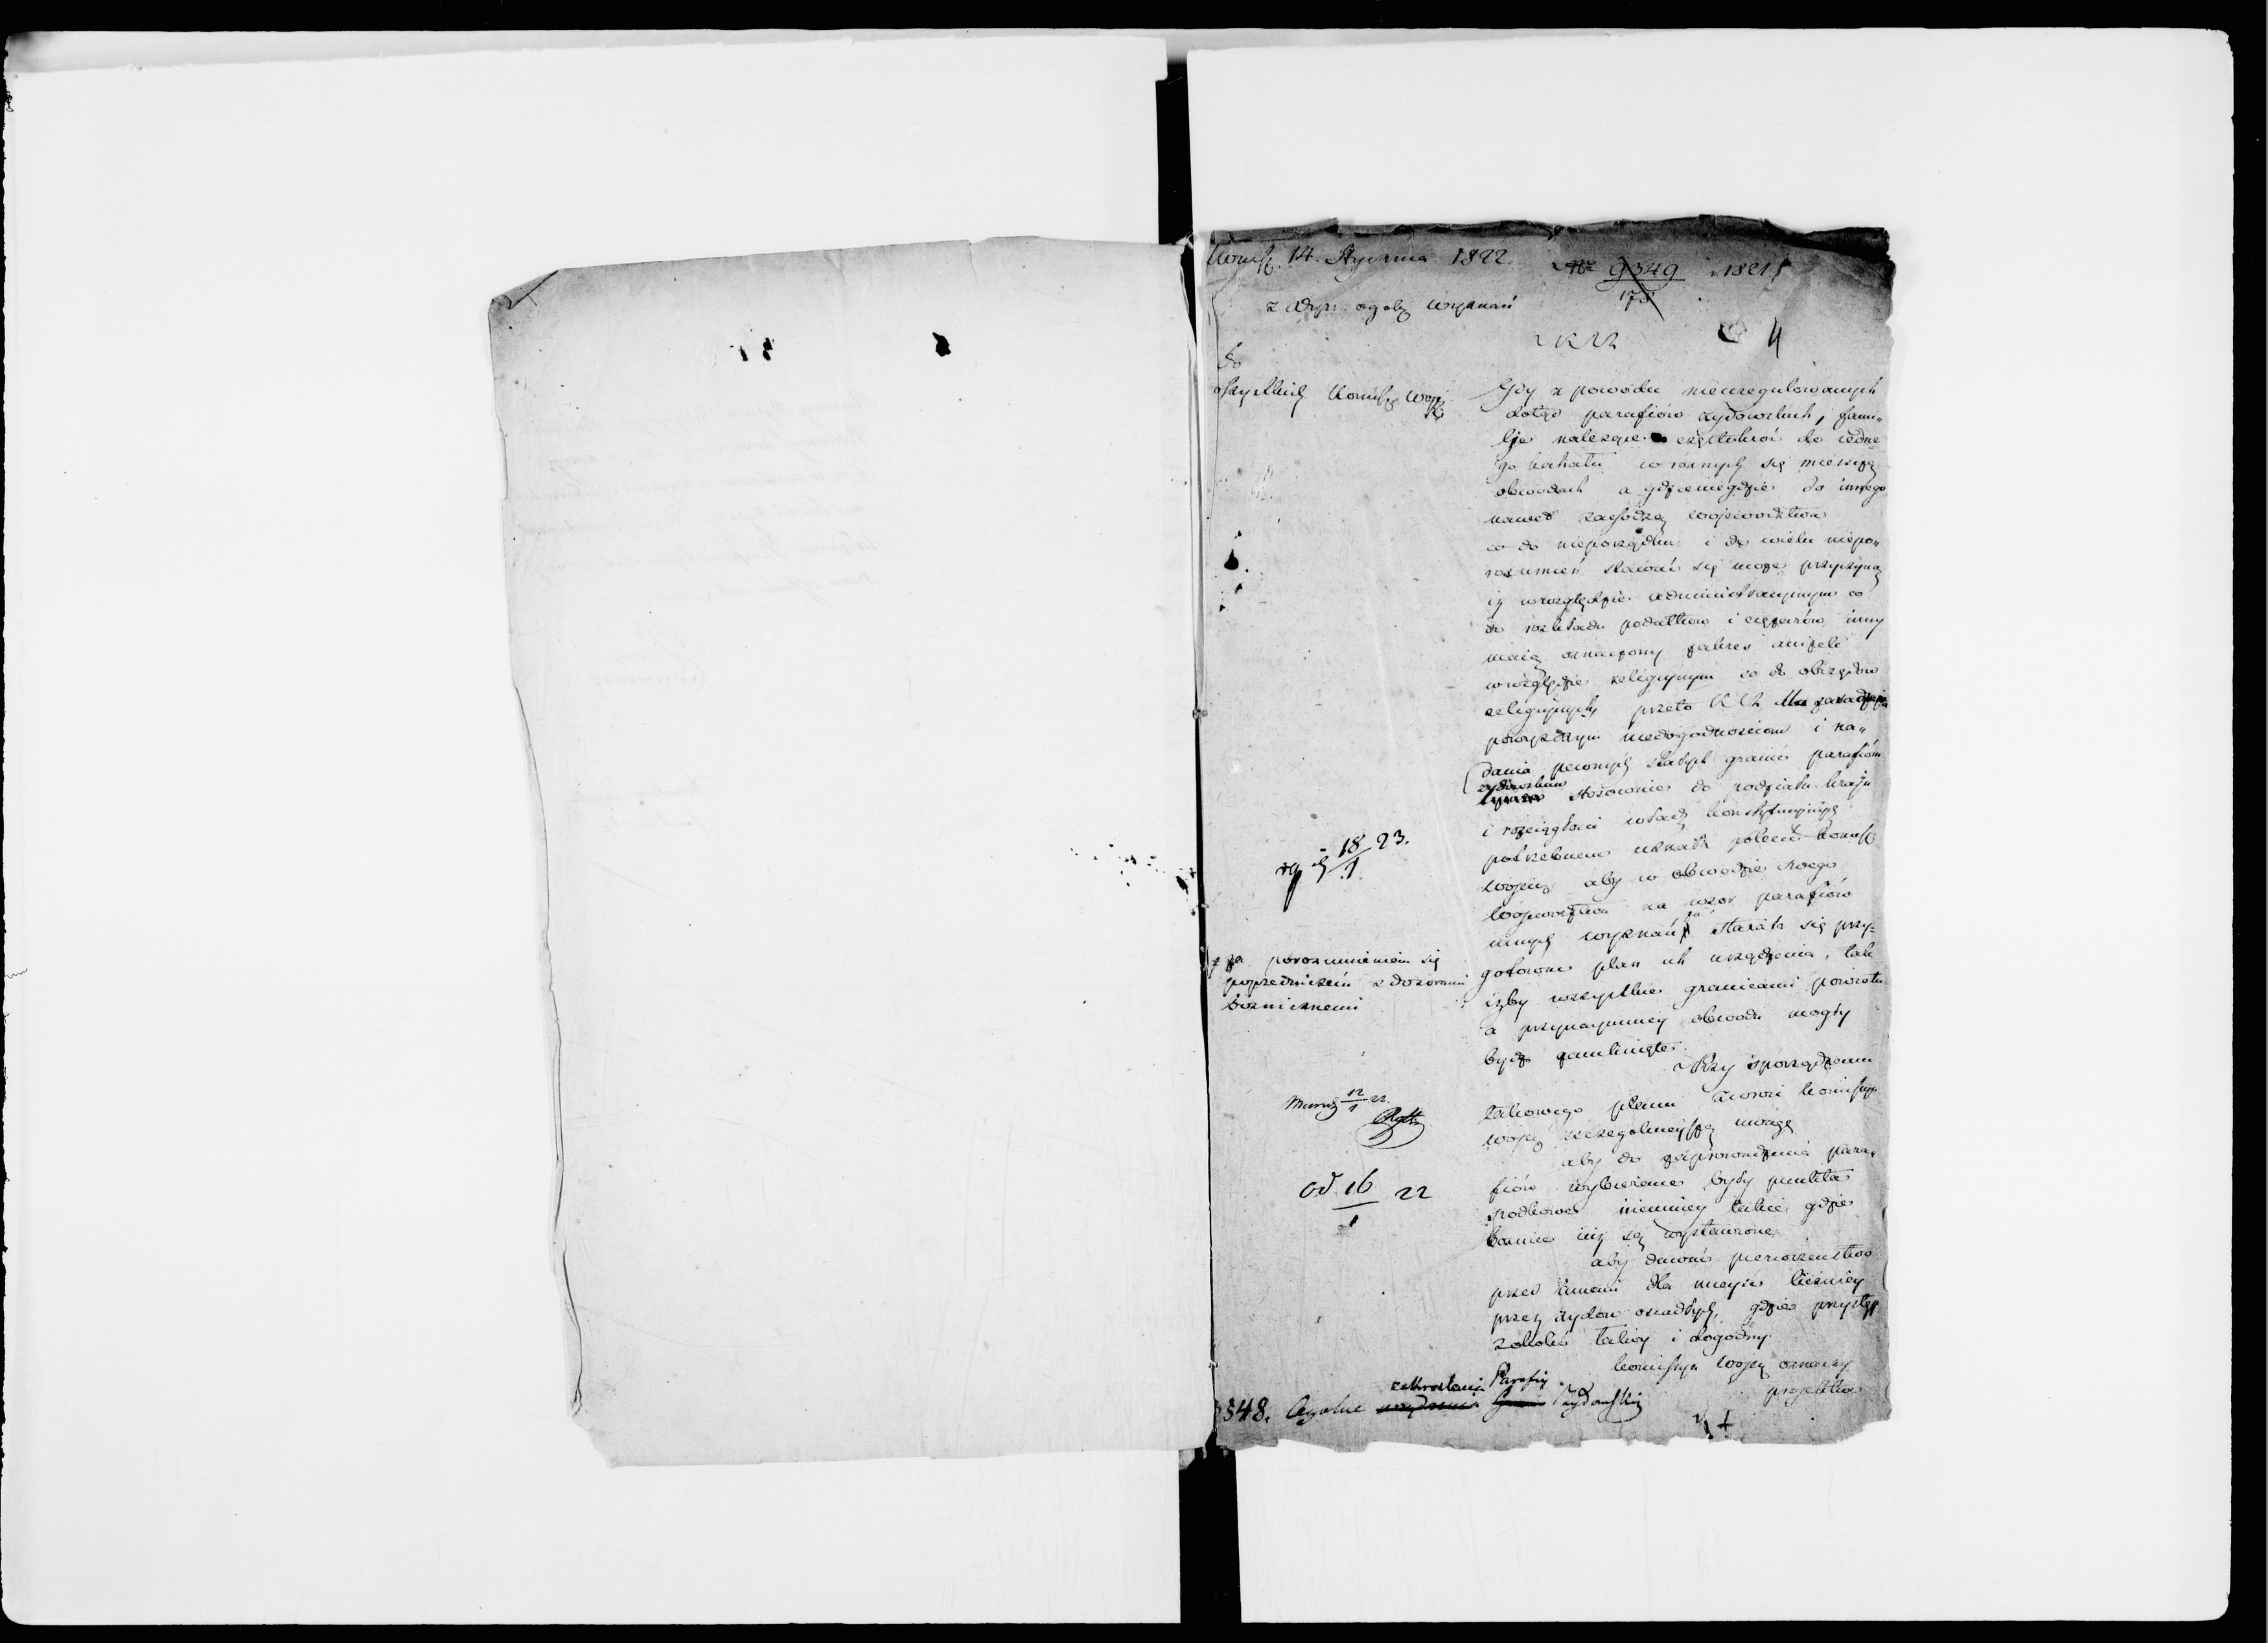 14. Stycznia 1822.
9349 1821
175
z Wyz. ogoln wyznań
4
Do
wszystkich Komiss Wojew
Gdy z powodu nieuregulowanych
dotąd parafiów żydowskich, fami„
lje należące częstokroć do iedne„
go kahału w roznych się mieszczą
obwodach a gdzieniegdzie do innego
nawet zachodzą wojewodztwa
co do nieporządku i do wielu niepo„
rozumień stawać się może przyczyną
iż w względzie administracyinym co
do rozkładu podatkow i ciężarów inny
maią oznaczony zakres aniżeli
w względzie religijnym co do obrzędow
religijnych, przeto
powyższym niedogodnosciom i na„
dania pewnych stałych granic parafiom
żydowskim
stosownie do podziału kraju
i rozciągłości władz konstytucyinych
potrzebnem uznała poleca Komiss
wojew aby w obwodzie swego
Wojewodztwa na wzor parafiów
innych wyznań starała się przy„
gotować plan ich urządzenia, tak
iżby wszystkie granicami powiatu
a przynaymniey obwodu mogły
bydź zamknięte.
Przy sporządzeniu
takowego planu zwroci komissya
wojew szczegolnieyszą uwagę
aby do zaprowadzenia para„
fiów wybierane były punkta
srodkowe niemniey takie gdzie
boznice iuż są wystawione
aby dawać pierwszenstwo
przed innemi dla mieysc liczniey
przez żydow osiadłych, gdzie przystęp
zokolic łatwy i dogodny.
komissya wojew oznaczy
projektow
18 23.
1.
za porozumieniem się
poprzedniczem z dozorami
bożnicznemi
12 22.
1
od. 16 22
1
348. Ogolne urządzenia żydowskich
zakreslenia Parafiy